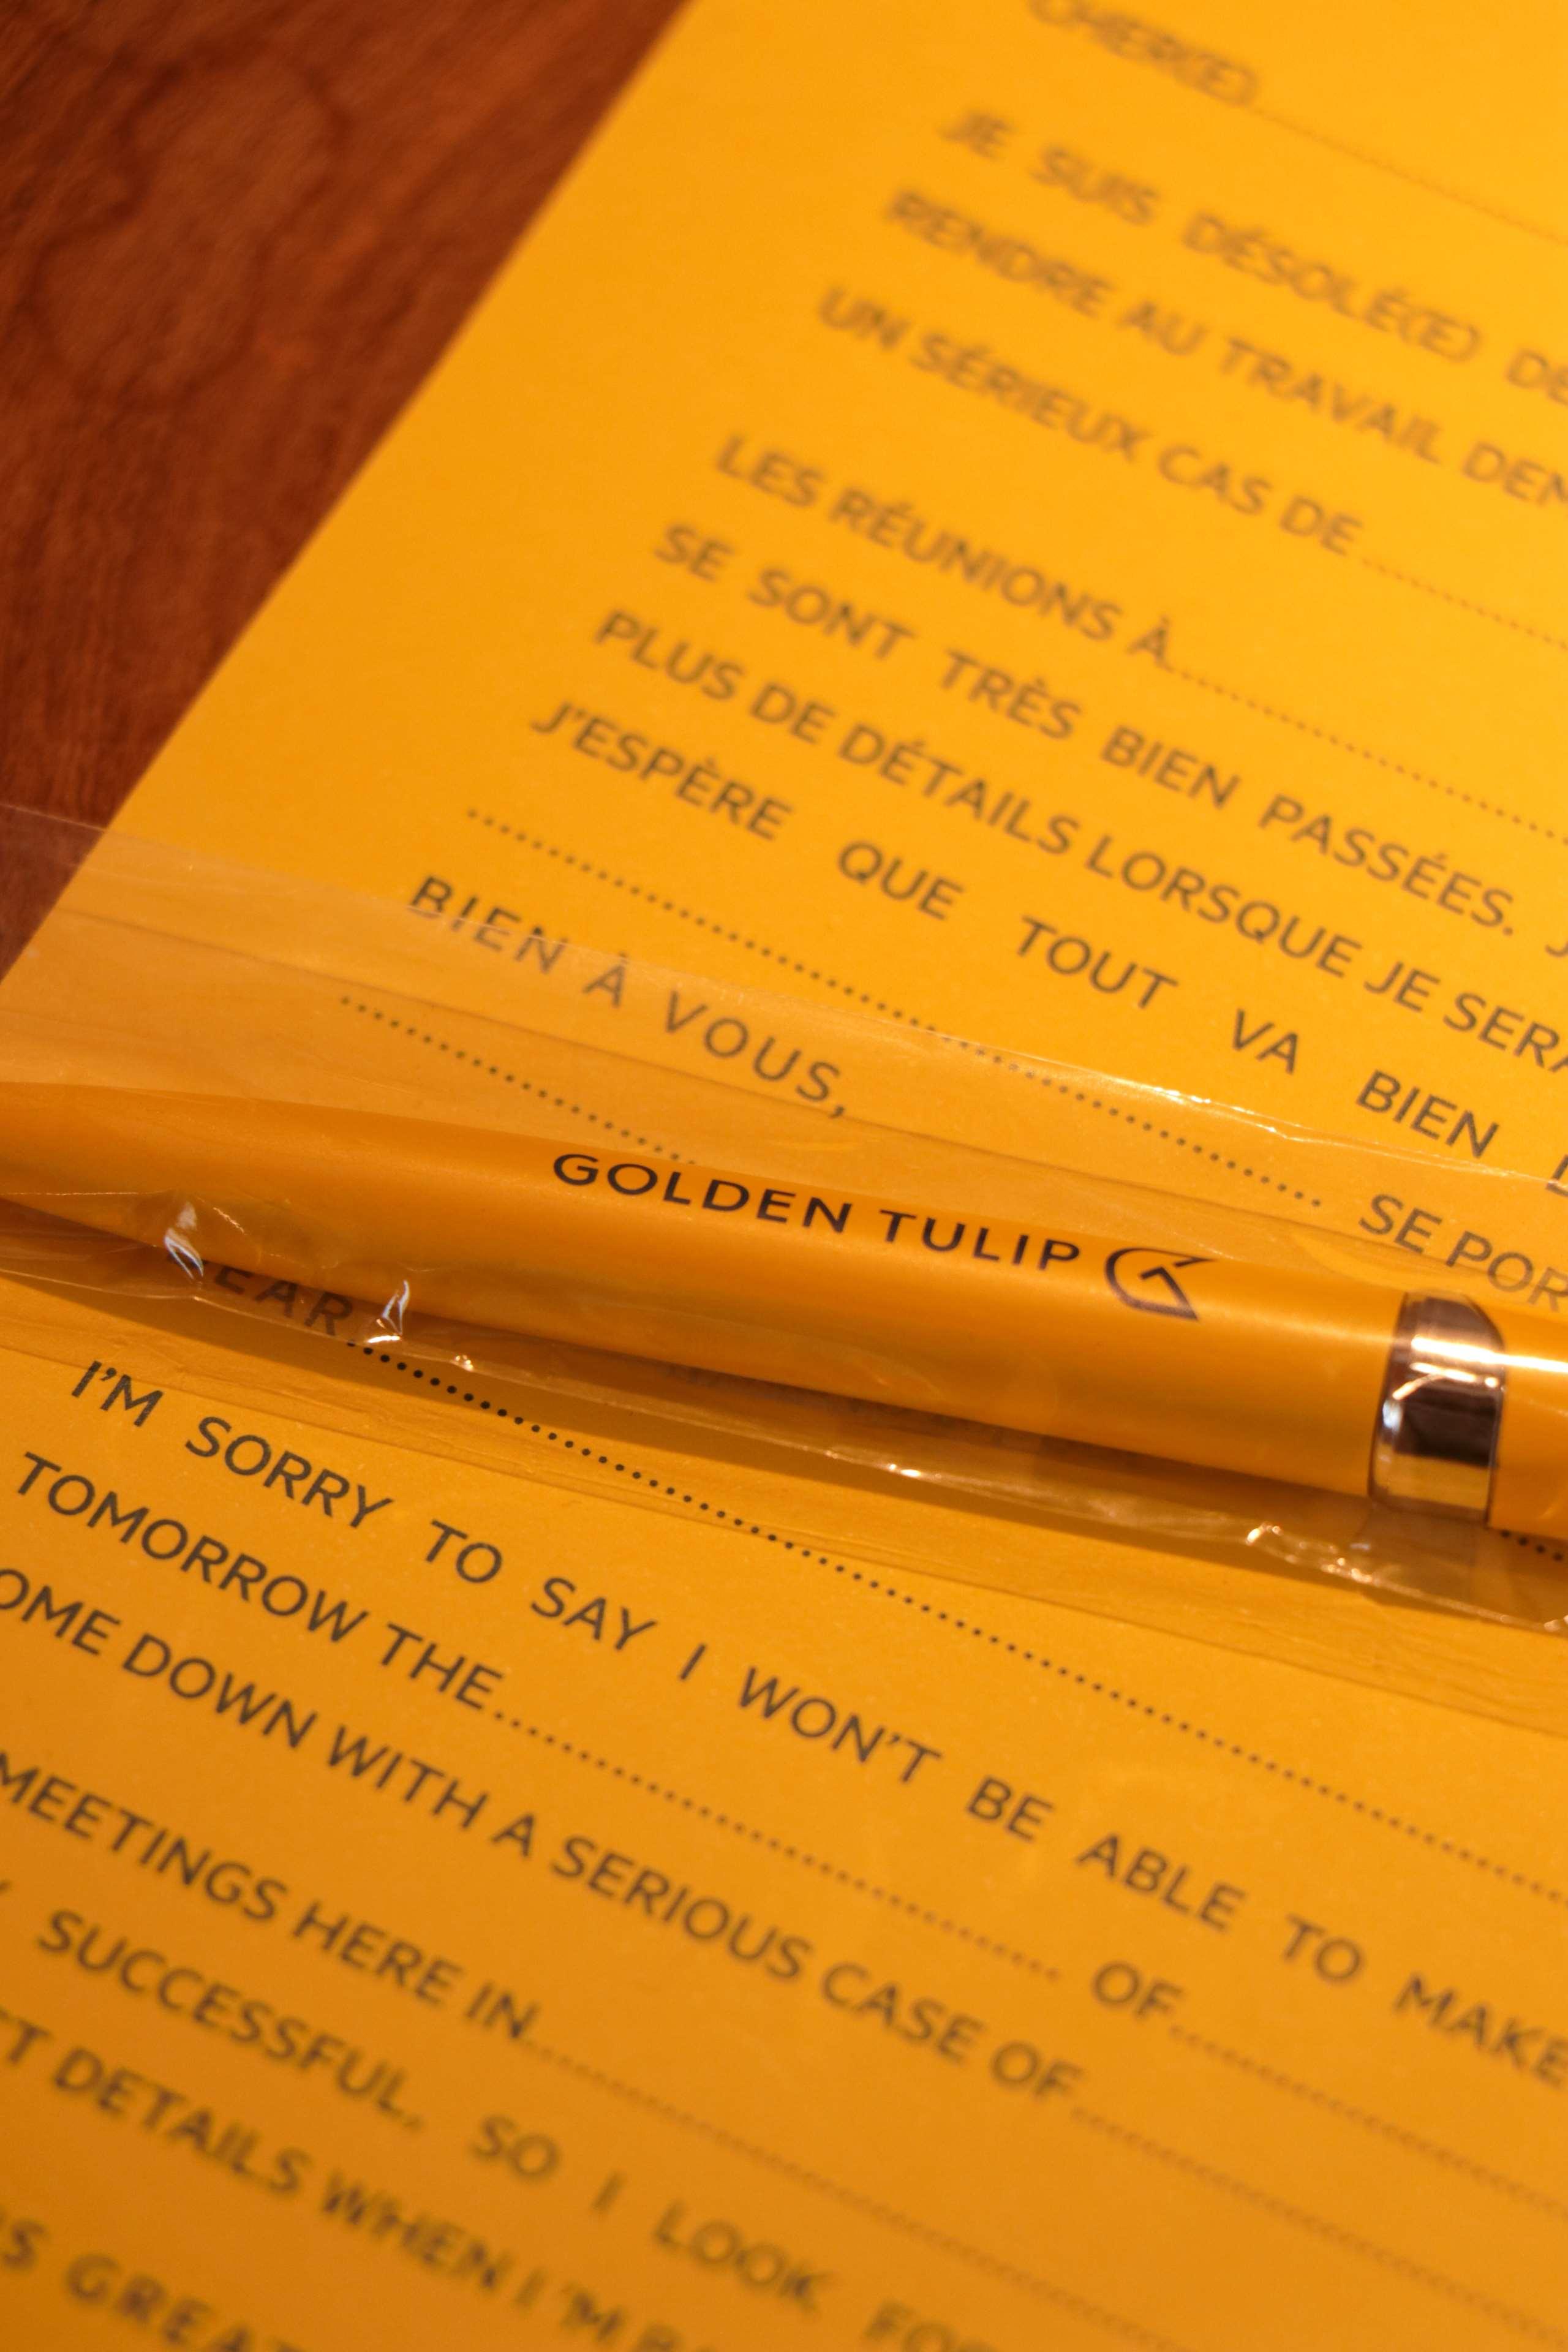 CHER(E)
JE SUIS DÉSOLÉ(E) DE
RENDRE AU TRAVAIL DEM
UN SÉRIEUX CAS DE
LES RÉUNIONS À
SE SONT TRÈS BIEN PASSÉES. J
PLUS DE DÉTAILS LORSQUE JE SERA
J'ESPÈRE QUE TOUT VA BIEN
SE POR
BIEN À VOUS,
GOLDEN TULIP
EAR
I'M SORRY TO SAY I WON'T BE ABLE TO MAKE
TOMORROW THE OF
OME DOWN WITH A SERIOUS CASE OF
MEETINGS HERE IN
Y SUCCESSFUL, SO I LOOK FOR
CT DETAILS WHEN I'M BA
S GREAT